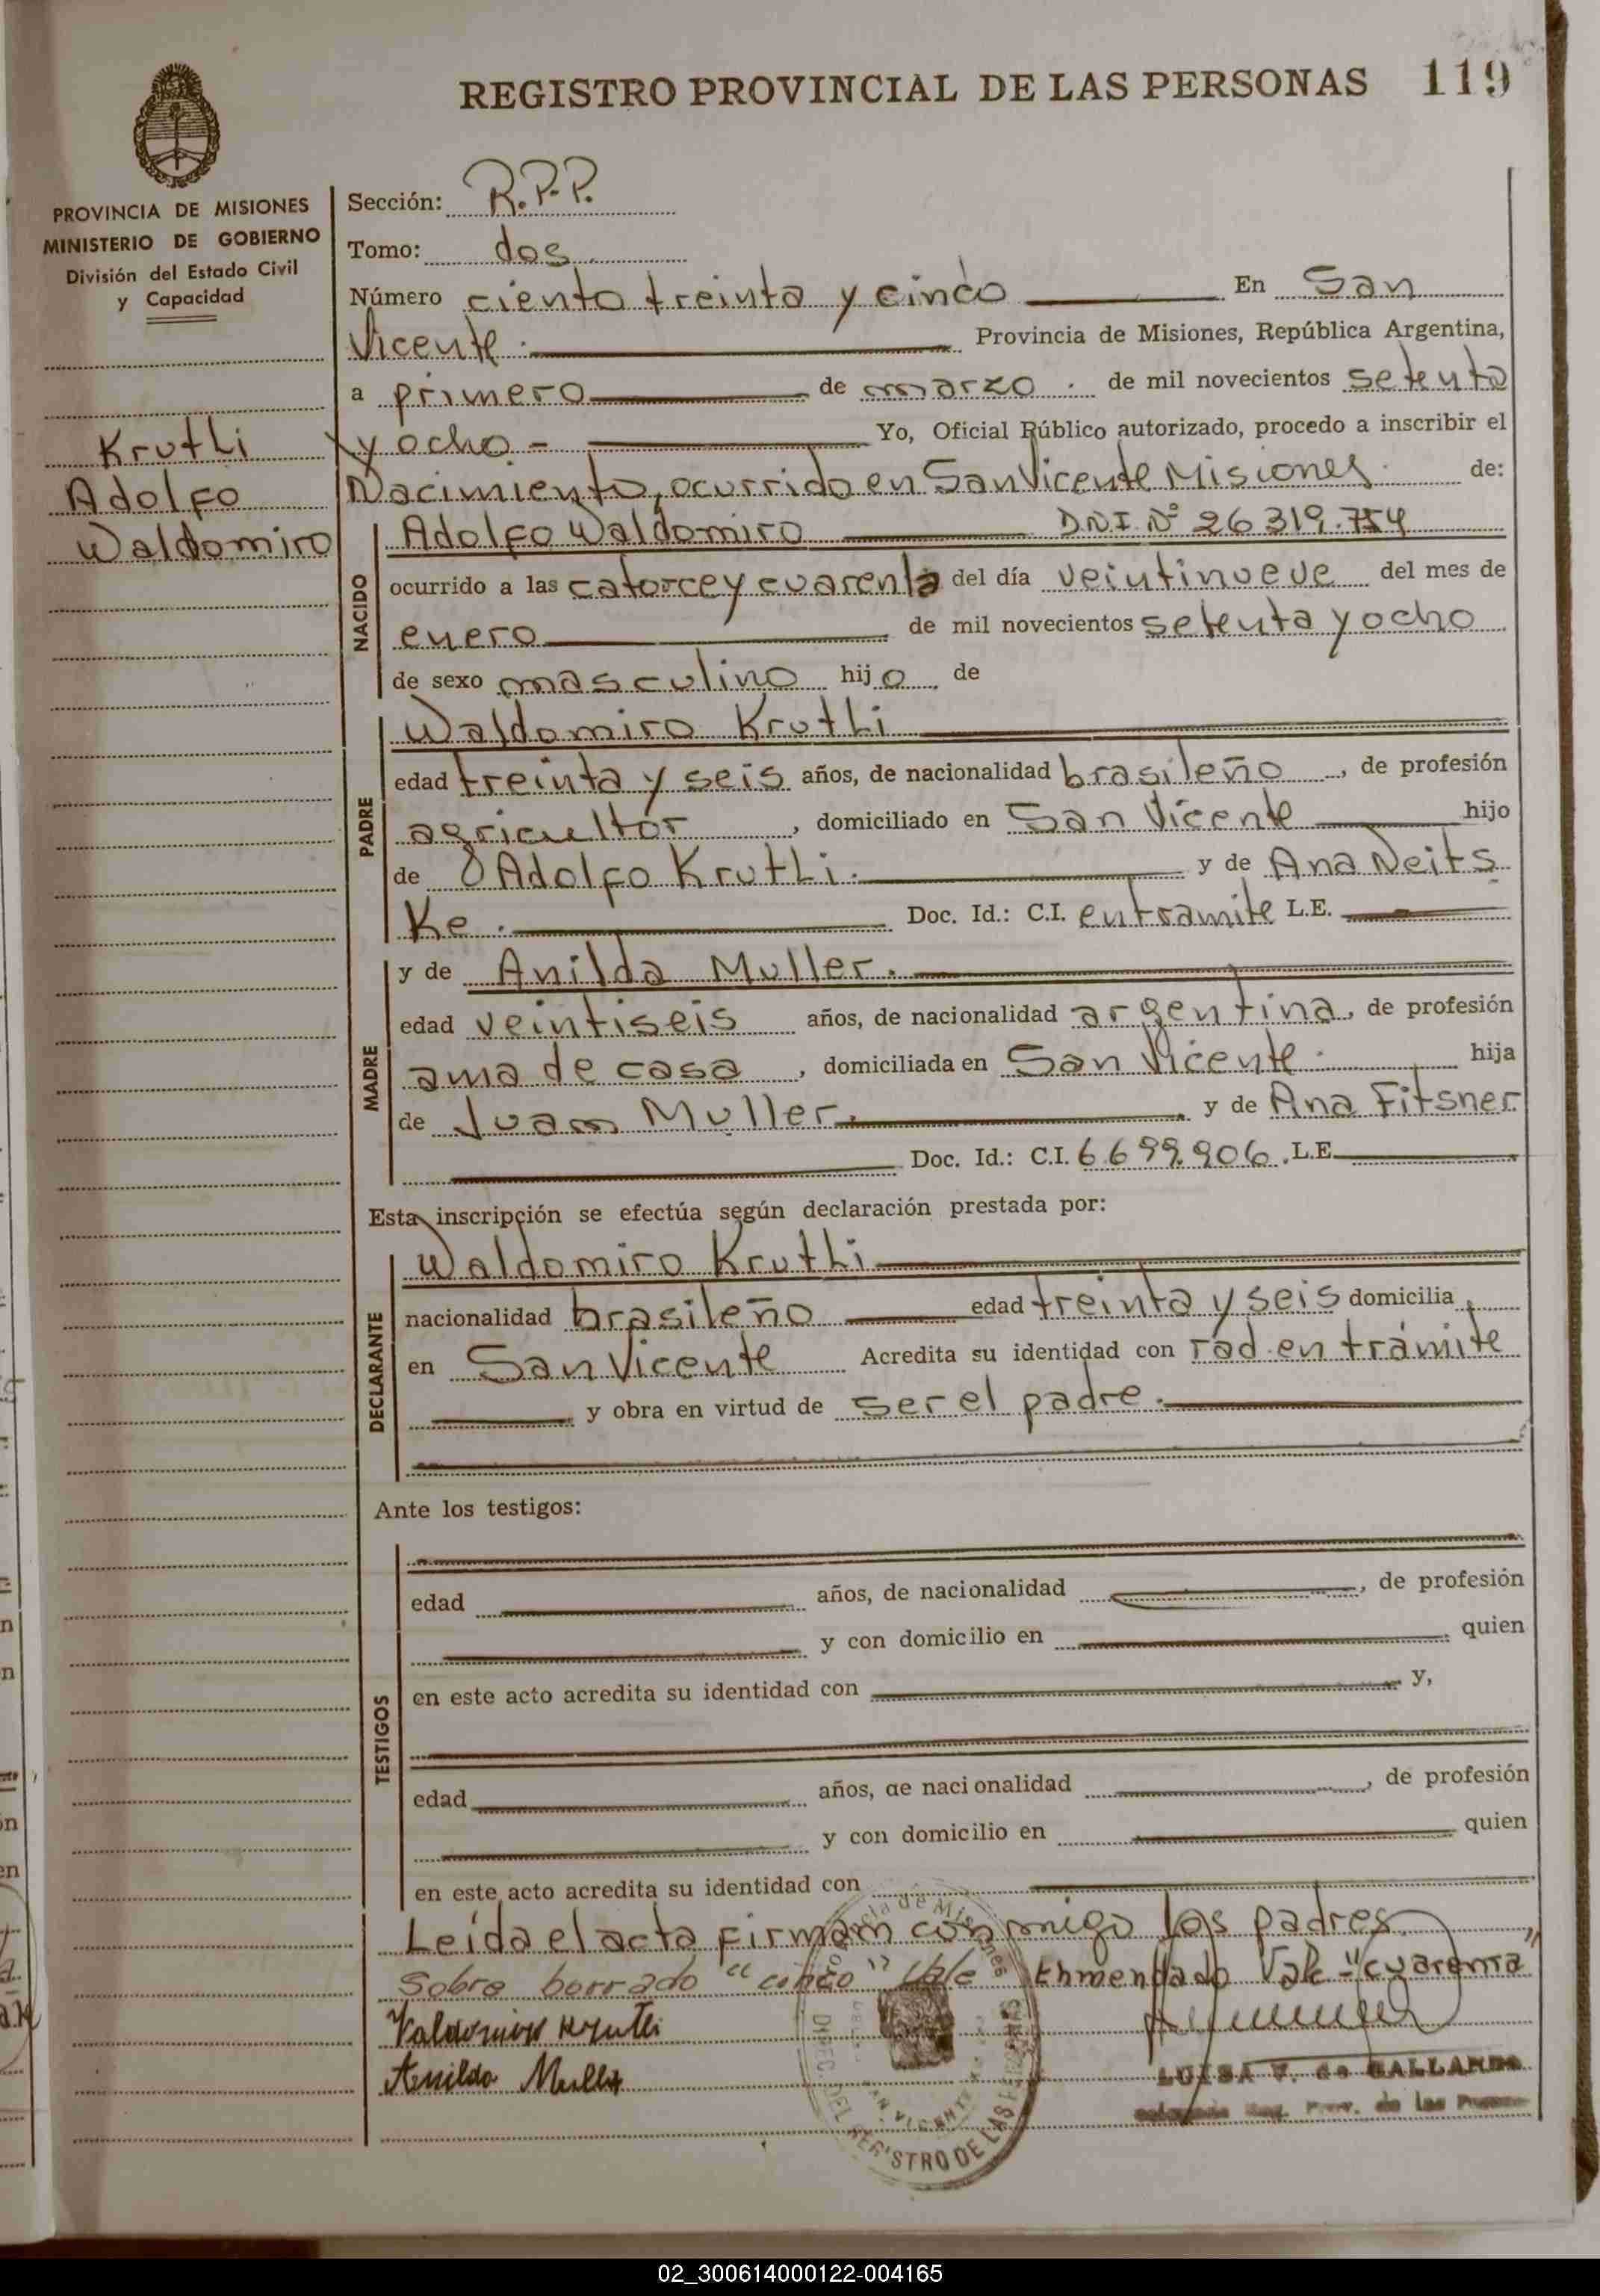 REGISTRO PROVINCIAL DE LAS PERSONAS 119
PROVINCIA DE MISIONES
MINISTERIO DE GOBIERNO
División del Estado Civil
y Capacidad
Krutli
Adolfo
Waldomiro
Sección: R.P.P.
Tomo: dos
Número ciento treinta y cinco En San
Vicente. Provincia de Misiones, República Argentina,
a primero de marzo. de mil novecientos setenta
y ocho.- Yo, Oficial Público autorizado, procedo a inscribir el
Nacimiento, ocurrido en San Vicente Misiones. de:
NACIDO
Adolfo Waldomiro D.N.I. Nº 26 319.754
ocurrido a las catorce y cuarenta del día veintinueve del mes de
enero de mil novecientos setenta y ocho
de sexo masculino hijo de
PADRE
Waldomiro Krutli
edad treinta y seis años, de nacionalidad brasileño, de profesión
agricultor, domiciliado en San Vicente hijo
de Adolfo Krutli. y de Ana Neits
Ke. Doc. Id.: C.I. en tramite L.E.
MADRE
y de Anilda Muller.
edad veintiseis años, de nacionalidad argentina, de profesión
ama de casa, domiciliada en San Vicente. hija
de Juan Muller. y de Ana Fitsner
Doc. Id.: C.I. 6.699.906. L.E
Esta inscripción se efectúa según declaración prestada por:
DECLARANTE
Waldomiro Krutli
nacionalidad brasileño edad treinta y seis domicilia
en San Vicente Acredita su identidad con rad. en trámite
y obra en virtud de ser el padre.
Ante los testigos:
TESTIGOS
edad años, de nacionalidad , de profesión
y con domicilio en quien
en este acto acredita su identidad con y,
edad años, de nacionalidad , de profesión
y con domicilio en quien
en este acto acredita su identidad con
Leída el acta firman conmigo los padres.
Sobre borrado "cinco" Vale Enmendado Vale "cuarenta"
Valdomiro Krutli
Anilda Muller
LUISA V. de GALLARDO
02_300614000122-004165